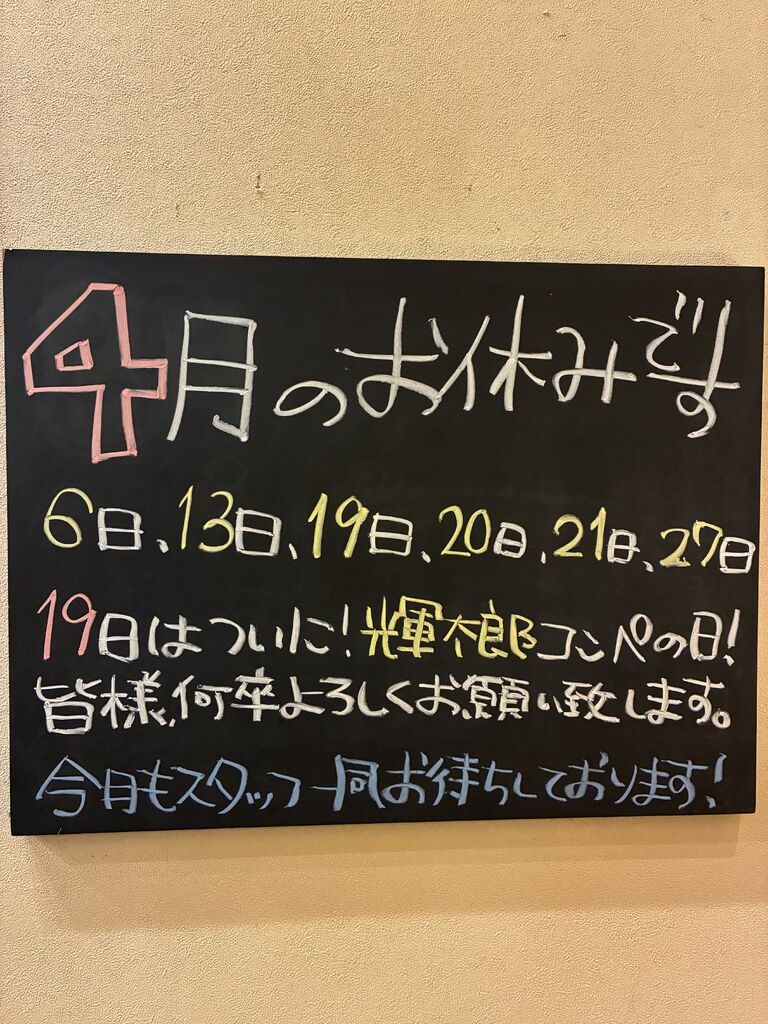 4月のお休みです
6日、13日、19日、20日、21日、27日
19日はついに！輝太郎コンペの日！
皆様、何卒よろしくお願い致します。
今月もスタッフ一同お待ちしております！